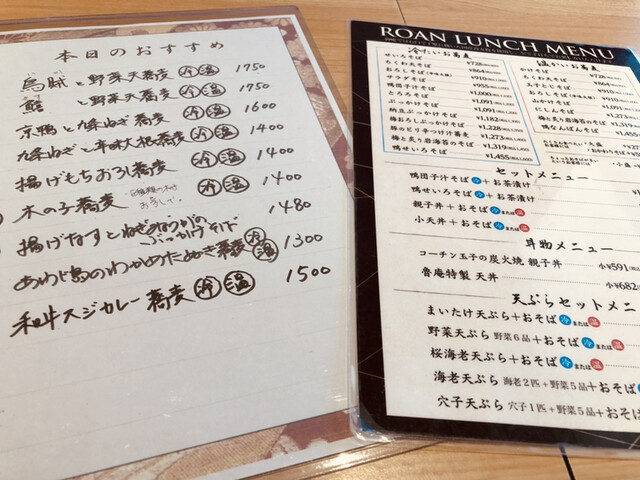 本日のおすすめ
烏賊と野菜天蕎麦 冷 温 1750
と野菜天蕎麦 冷 温 1750
京鴨と九条ねぎ蕎麦 冷 温 1600
九条ねぎと辛味大根蕎麦 1400
揚げもちおろし蕎麦 冷 温 1400
木の子蕎麦 冷 温 1400
揚げなすとねぎみょうがの
ぶっかけそば 1480
あわじ島のわかめたぬき蕎麦 冷 温 1300
和牛スジカレー蕎麦 冷 温 1500
ROAN LUNCH MENU
冷たいお蕎麦
せいろそば ¥728
ちくわ天そば ¥864
おろしそば ¥864
サラダそば ¥910
鴨団子汁そば ¥955
とろろそば ¥1,001
ぶっかけそば ¥1,091
納豆ぶっかけそば ¥1,091
梅おろしぶっかけそば ¥1,182
豚のピリ辛つけ蕎麦 ¥1,228
梅と炙り岩海苔のそば ¥1,319
鴨せいろそば ¥1,455
温かいお蕎麦
かけそば ¥728
ちくわ天そば
玉子とじそば
おろしそば
山かけそば
にしんそば
梅と炙り岩海苔のそば
鴨なんばんそば
セットメニュー
鴨団子汁そば 冷 +お茶漬け
鴨せいろそば 冷 +お茶漬け
親子丼+おそば 冷 または 温
小天丼+おそば 冷 または 温
丼物メニュー
コーチン玉子の炭火焼 親子丼 小¥591
魯庵特製 天丼 小¥682
天ぷらセットメニ
まいたけ天ぷら+おそば 冷 または 温
野菜天ぷら 野菜6品+おそば 冷 または 温
桜海老天ぷら+おそば 冷 または 温
海老天ぷら 海老2匹+野菜5品+おそば 冷
穴子天ぷら 穴子1匹+野菜5品+おそば